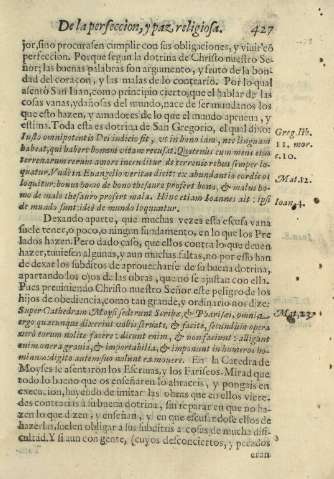 De la perfeccion, y paz, religiosa. 427
jor, sino procurasen cumplir con sus obligaciones, y viuir cõ
perfeccion. Porque segun la dotrina de Christo nuestro Se-
ñor; las buenas palabras son argumento, y fruto de la bon-
dad del coraçon, y las malas de lo contrario. Por lo qual
asento San Iuan, como principio cierto, que el hablar de las
cosas vanas, y dañosas del mundo, nace de ser mundanos los
que esto hazen, y amadores de lo que el mundo aprueua, y
estima. Toda esta es dotrina de San Gregorio, el qual dixo:
Iusto omnipotentis Dei iudicio fit, vt in linguam
babeat, qui habere bonam vitam recusat. Quatenus cum mens eius
terrenarum rerum amore incenditur de terrenis rebus semper lo-
quatur. Vnde in Euangelio veritas dicit: ex abundantia cordis os
loquitur: bonus homo de bono thesauro profert bona, & malus ho-
mo de malo thesauro profert mala. Hinc etiam Ioannes ait: ipsi
de mundo sunt ideo de mundo loquuntur.
Greg. lib.
11. mor.
c. 10.
Mat. 12.
Ioan. 4.
Dexando aparte, que muchas vezes esta escusa vana
suele tener, o poco, o ningun fundamento, en lo que los Pre
lados hazen. Pero dado caso, que ellos contra lo que deuen
hazer, tuuiesen algunas, y aun muchas faltas, no por esso han
de dexar los subditos de aprouecharse de su buena dotrina,
apartando los ojos de las obras, quando se ajustan con ella.
Pues preuiniendo Christo nuestro Señor este peligro de los
hijos de obediencia, como tan grande, y ordinario nos dize:
Super Cathedram Moysi sederunt Scribæ, & Pharisei, omnia
ergo quæcunque dixerint vobis seruate, & facite, secundum opera
vero eorum nolite facere: dicunt enim, & non faciunt: alligant
enim onera grauia, & importabilia, & imponunt in humeros ho-
minum: digito autem suo nolunt ea mouere. En la Catedra de
Moyses se asentaron los Escriuas, y los Fariseos. Mirad que
todo lo bueno que os enseñaren lo abraceis, y pongais en
execucion, huyendo de imitar las obras que en ellos vieredes
contrarias a su buena dotrina, sin reparar en que no ha-
zen lo que dizen, y enseñan, y en que escusandose ellos de
hazerlas, suelen obligar a sus subditos a cosas de mucha difi-
cultad. Y si aun con gente, (cuyos desconciertos, y pecados
Mat. 23.
eran